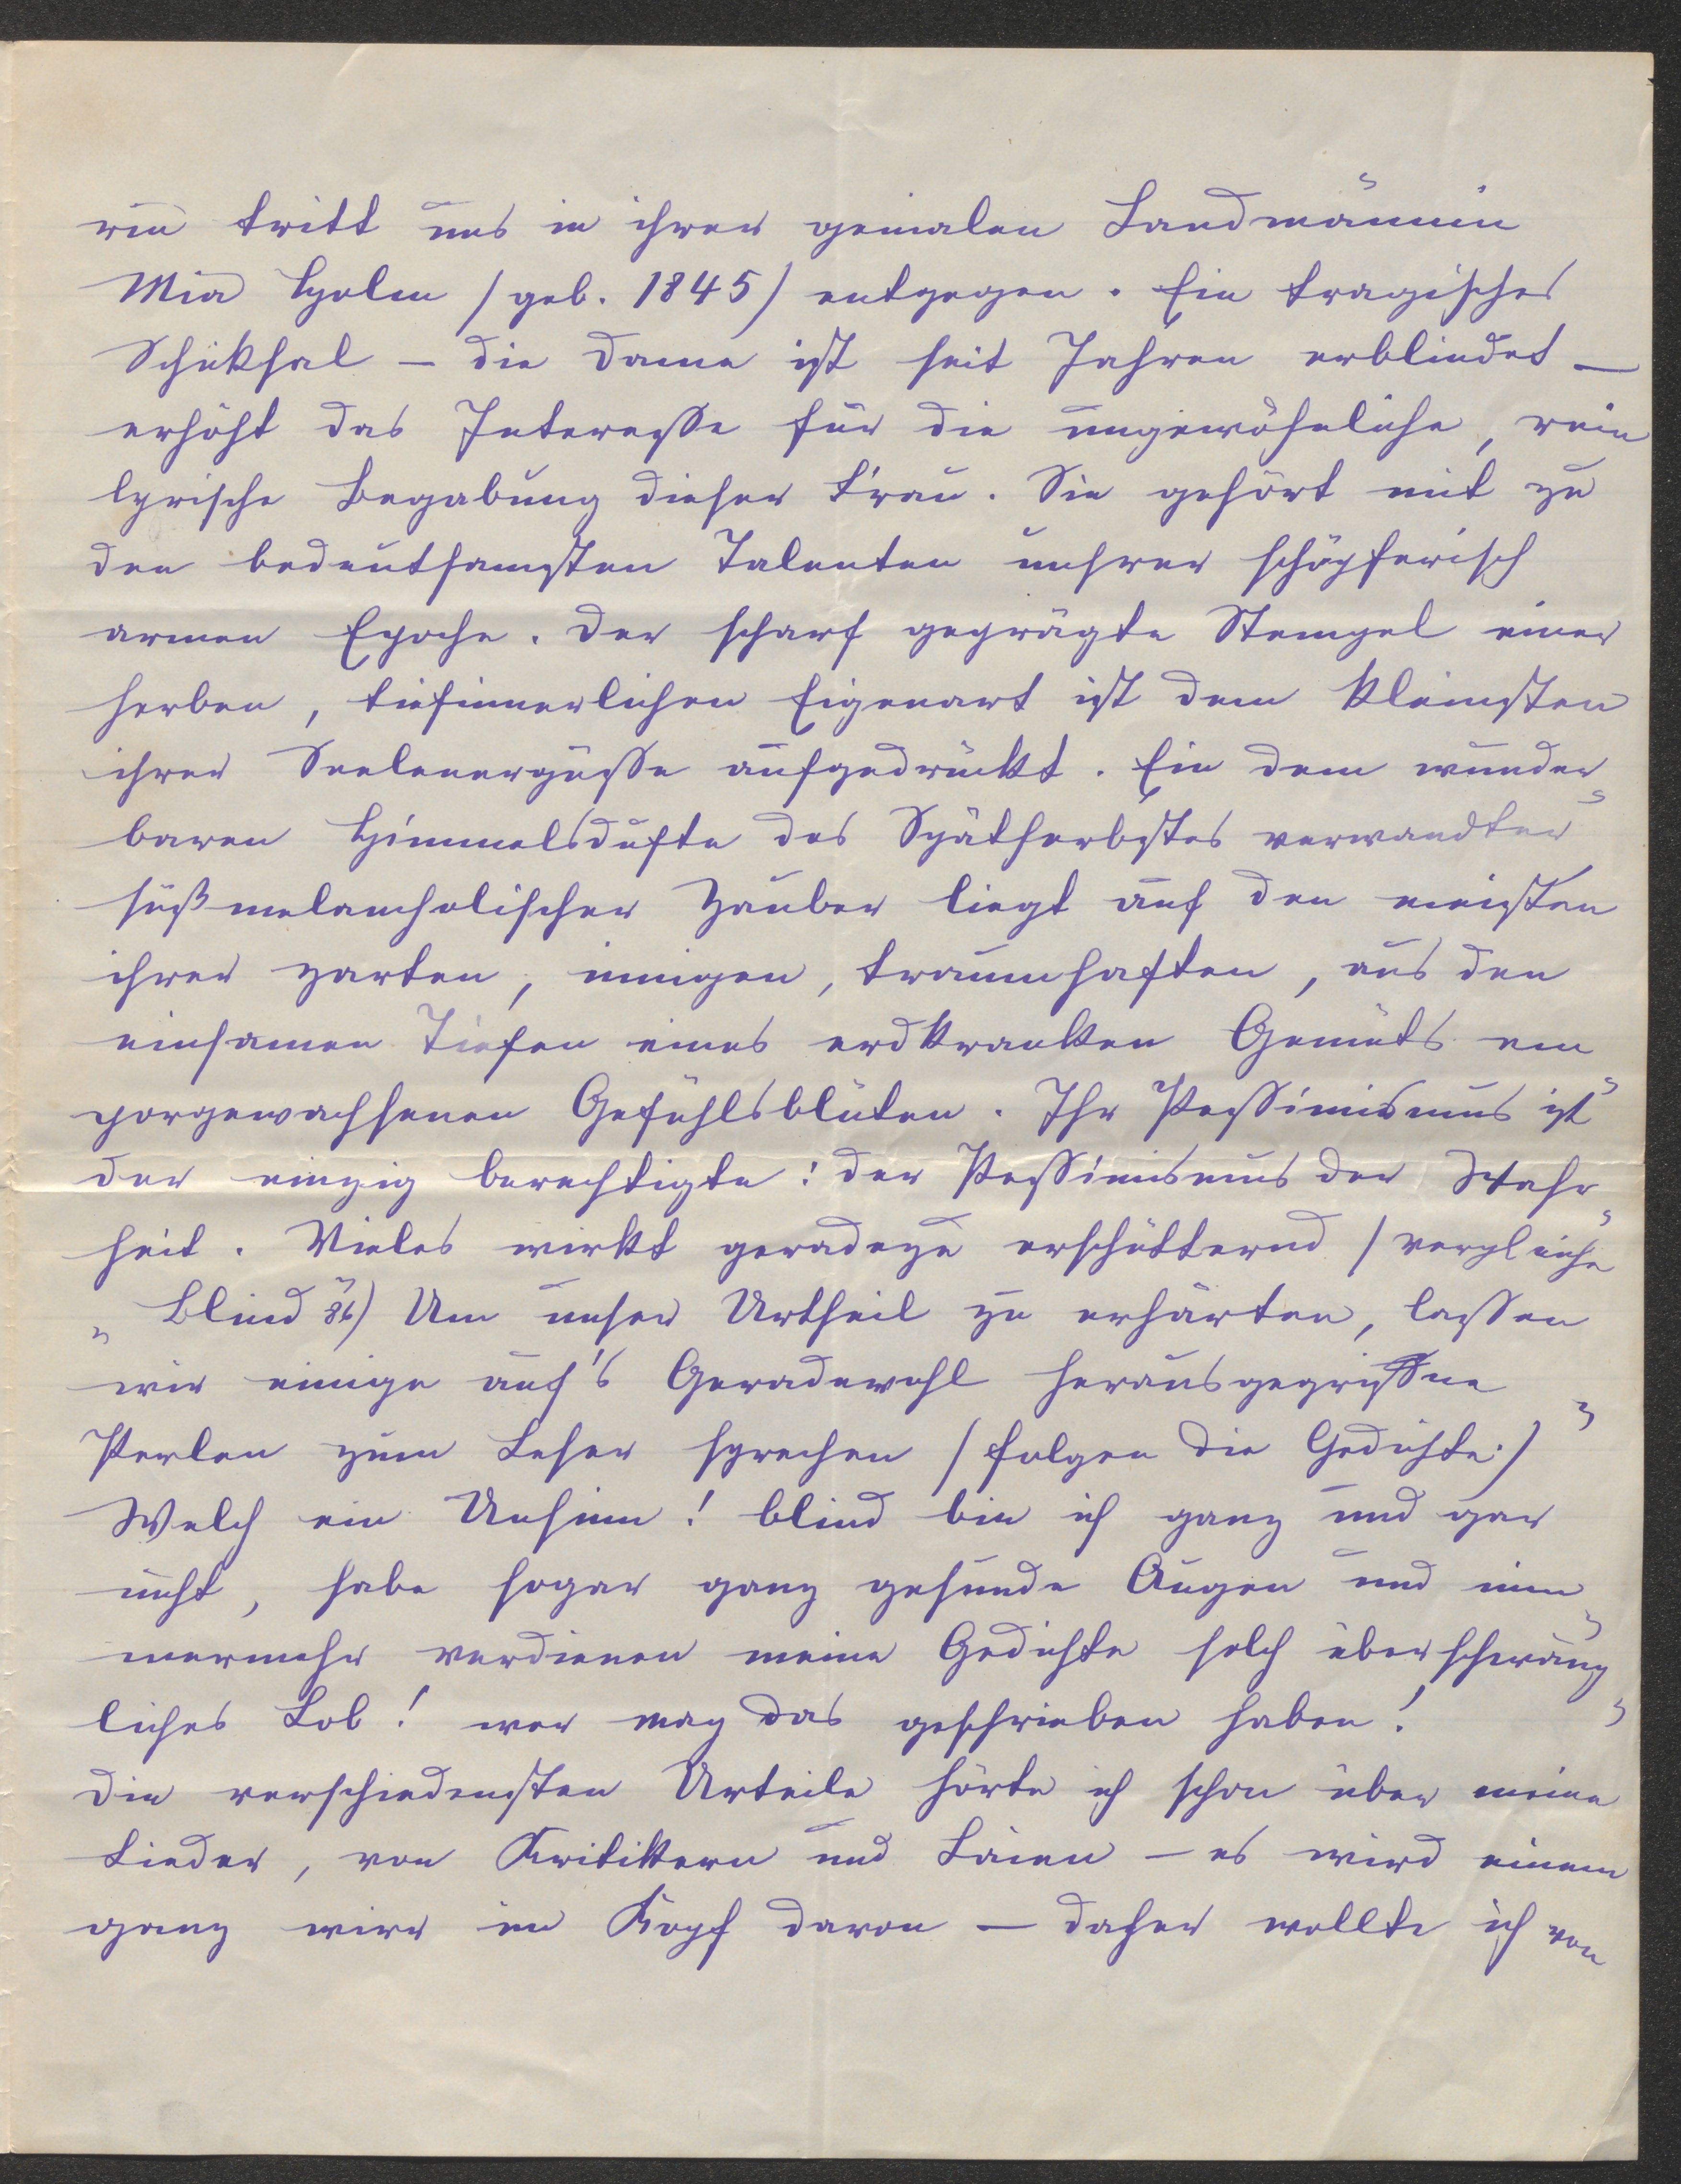 rin tritt uns in ihrer genialen Landmännin
Mia Holm (geb. 1845) entgegen. Ein tragisches
Schikſal – die Dame iſt ſeit Jahren erblindet –
erhöht das Intereſſe für die ungewöhnliche, rein
lyriſche Begabung dieſer Frau. Sie gehört mit zu
den bedeutſamſten Talenten unſrer ſchöpferiſch
armen Epoche. Der ſcharf geprägte Stempel einer
herben, tiefinnerlichen Eigenart iſt dem kleinſten
ihrer Seelenergüſſe aufgedrückt. Ein dem wunder⸗
baren Himmelsdufte des Spätherbſtes verwandter
ſüßmelancholiſcher Zauber liegt auf den meiſten
ihrer zarten, innigen, traumhaften, aus den
einſamen Tiefen eines erdkranken Gemüts em⸗
porgewachſenen Gefühlsblüten. Ihr Peſſimismus iſt
der einzig berechtigte: der Peſſimismus der Wahr⸗
heit. Vieles wirkt geradezu erſchütternd (vergleiche
„Blind“ 86) Um unſer Urtheil zu erhärten, laſſen
wir einige auf's Geradewohl herausgegriffne
Perlen zum Leſer ſprechen (folgen die Gedichte.)“
Welch ein Unſinn! blind bin ich ganz und gar
nicht, habe ſogar ganz geſunde Augen und nim⸗
mermehr verdienen meine Gedichte ſolch überſchwäng⸗
liches Lob! wer mag das geſchrieben haben!
Die verſchiedenſten Urteile hörte ich ſchon über meine
Lieder, von Kritikern und Laien – es wird einem
ganz wirr im Kopf davon – daher wollte ich von